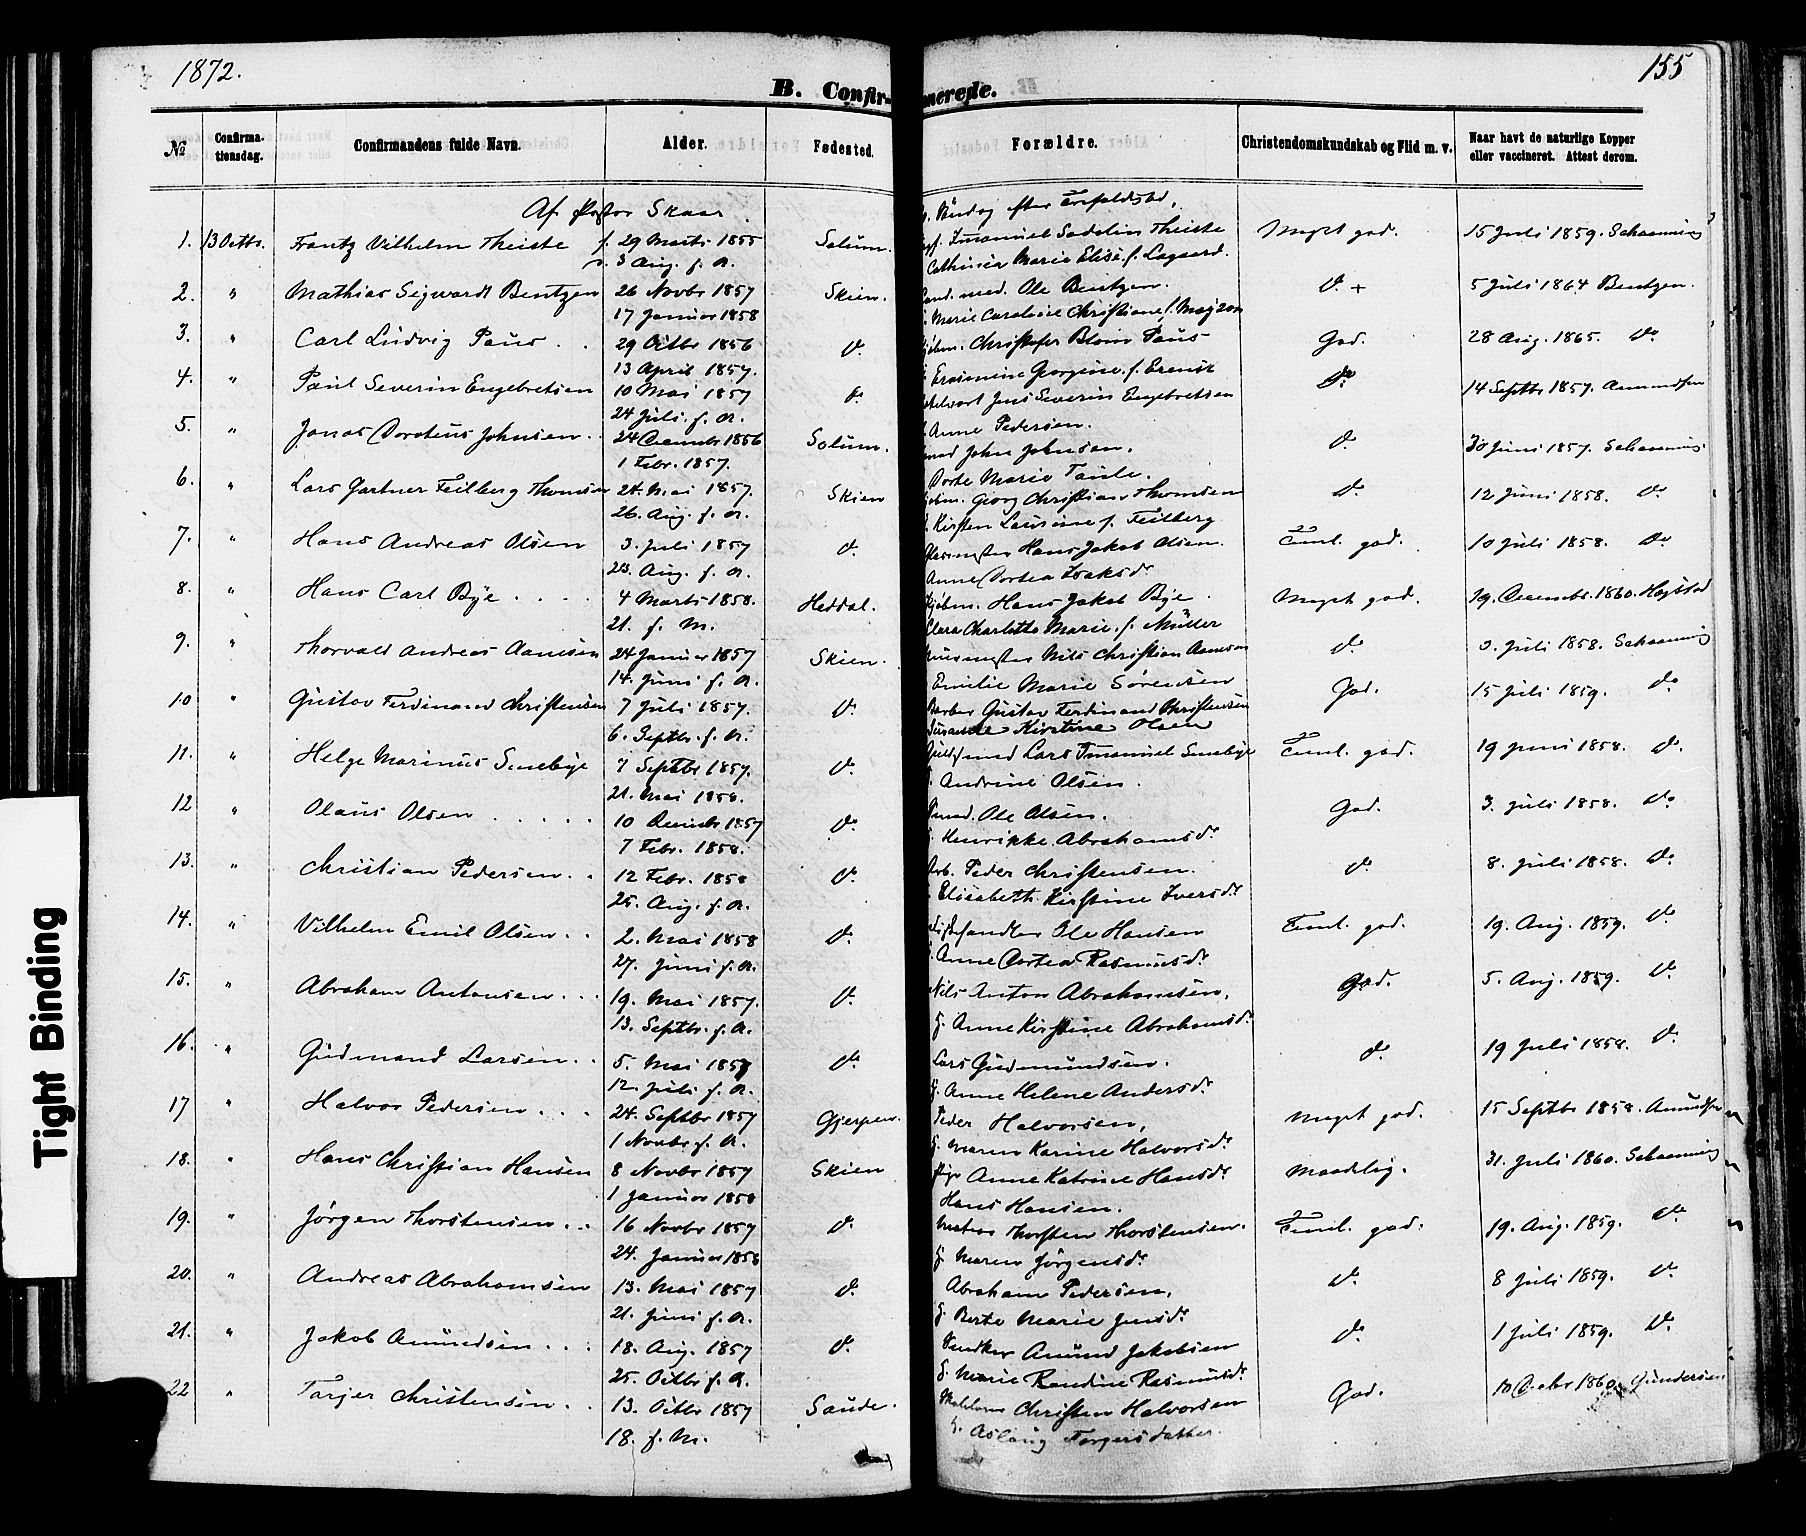 1872.
155
B. Confirmerede.
№ Confirmationsdag. Confirmandens fulde Navn. Alder. Fødested. Forældre. Christendomskundskab og Flid m. v. Naar havt de naturlige Kopper eller vaccineret. Attest derom.
Af Pastor Skaar. Søndag efter
1. 13 Octbr. Frantz Vilhelm Theiste f. 29 Marts 1855 Solum. Imanuel Sadolin Theiste Meget god. 15 Juli 1859. Schaanning
3 Aug. f. A. Cathinca Marie Elise f. Lagaard.
2. " Mathias Sigwardt Bentzen 26 Novbr 1857 Skien. Cand. med. Ole Bentzen. do + 5 Juli 1864 Bentzen.
17 Januar 1858 Marie Caroline Christiane f. Majzon
3. " Carl Ludvig Paus . . 29 Octbr 1856 do Kjøbm. Christofer Blom Paus God. 28 Aug. 1865. do
13 April 1857. Erasmine Georgine f. Ernst
4. " Paul Severin Engebretsen 10 Mai 1857 do Jens Severin Engebretsen do 14 Septbr 1857. Amundsen
24 Juli f. A. Anne Pedersen.
5. " Jonas Dorotius Johnsen . . 24 December 1856 Solum. John Johnsen. do 30 Juni 1857. Schaanning.
1 Febr. 1857. Dorte Marie
6. " Lars Gartner Feilberg Thomsen 24. Mai 1857. Skien Kjøbm. Georg Christian Thomsen do 12 Juni 1858. do
26. Aug. f. A. Kirsten Laurine f. Feilberg
7. " Hans Andreas Olsen 3. Juli 1857 do Hans Jakob Olsen. Teml. god. 10 Juli 1858. do
23. Aug. f. A. Anne Dortea Isaksdr
8. " Hans Carl Bye . . . . 4 Marts 1858. Heddal. Kjøbm. Hans Jakob Bye . Meget god. 19. December 1860. Hogstad
21. f. M. Clara Charlotte Marie f. Müller
9. " Thorvald Andreas Aamsen 24 Januar 1857 Skien. Nils Christian Aamsen do Juli 1858. Schaanning
14. Juni f. A. Emilie Marie Sørensen
10 " Gustav Ferdinand Christensen 7 Juli 1857. do Barber Gustav Ferdinand Christensen God. 15 Juli 1859. do
6. Septbr. f. A. Kirstine Olsen
11. " Helge Marinus Smebye 7 Septbr 1857. do Lars Imanuel Smebye Teml. god. 19 Juni 1858. do
21. Mai 1858. Andrine Olsen.
12 " Olaus Olsen . . . . . 10 December 1857 do Ole Olsen. God. 3. Juli 1858. do
7 Febr. 1858. Henrikke Abrahamsdr
13. " Christian Pedersen . . 12 Febr. 1858 do Arb. Peder Christensen. do 8. Juli 1858. do
25. Aug. f. A. Elisabeth Kirstine Iversdr
14. " Vilhelm Emil Olsen . . 2. Mai 1858 do Ole Hansen Teml. god. 19. Aug. 1859. do
27. Juni f. A. Anne Dortea Rasmusdr
15. " Abraham Antonsen . . . 19. Mai 1857. do Nils Anton Abrahamsen. God. 5. Aug. 1859. do
13. Septbr. f. A. H. Anne Kirstine Abrahamsdr
16. " Gudmund Larsen . . 5. Mai 1857 do Lars Gudmundsen. do 19 Juli 1858. do
12. Juli f. A. H. Anne Helene Andersdr
17 " Halvor Pedersen . . . 24. Septbr 1857 Gjerpen. Peder Halvorsen, Meget god. 15 Septbr 1858. Amundsen
1 Novbr f. A. H. Maren Karine Halvorsdr
18. " Hans Christian Hansen 8 Novbr 1857 Skien Pige Anne Katrine Hansdr Maadelig. 31. Juli 1860. Schaanning
1 Januar 1858 Hans Hansen.
19. " Jørgen Thorstensen . . 16 Novbr 1857 do Matros Thorsten Thorstensen. Teml. god. 19. Aug. 1859. do
24. Januar 1858 H. Maren Jørgensdr
20. " Andreas Abrahamsen 13. Mai 1857 do Abraham Pedersen, do 8 Juli 1859. do
21. Juni f. A. H. Berte Marie Jensdr
21. " Jakob Amundsen . . . 18. Aug. 1857 do Amund Jakobsen do 1 Juli 1859. do
25. Octbr f. A. H. Marie Randine Rasmusdr
22 " Tarjer Christensen . . 13. Octbr 1857 Saude. Christen Halvorsen God. 10 1860. Gundersen
18. f. M. H. Aslaug Torgersdatter.
Tight Binding